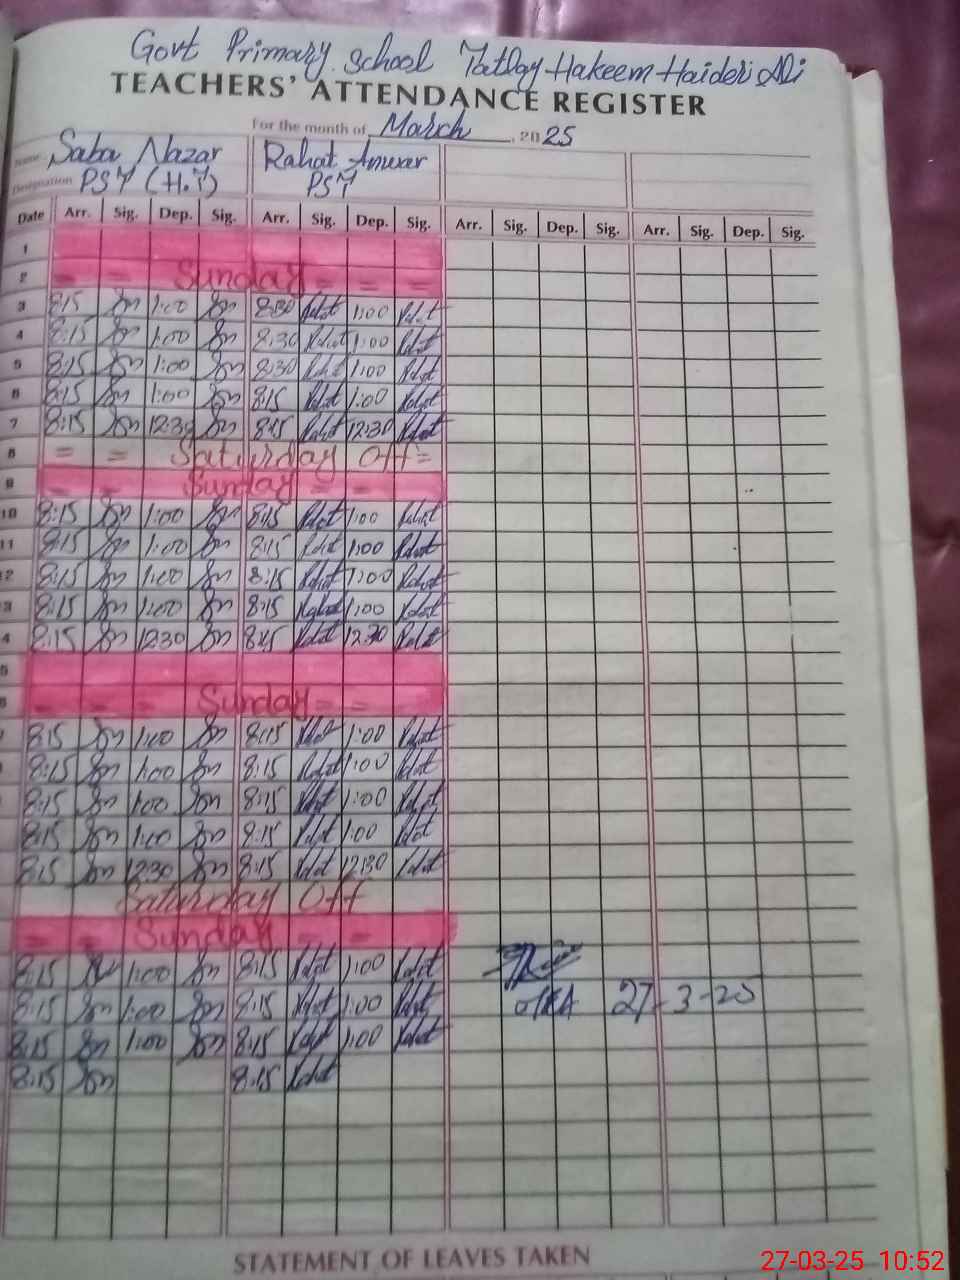 Govt Primary School Tatlay Hakeem Haider Ali
TEACHERS' ATTENDANCE REGISTER
For the month of March, 2025
Name Saba Nazar Rahat Anwar
Designation PST (H.T) PST
Date Arr. Sig. Dep. Sig. Arr. Sig. Dep. Sig. Arr. Sig. Dep. Sig. Arr. Sig. Dep. Sig.
1
2 = = Sunday = = =
3 8:15 Sn 1:00 Sn 8:30 Rahat 1:00 Rahat
4 8:15 Sn 1:00 Sn 8:30 Rahat 1:00 Rahat
5 8:15 Sn 1:00 Sn 8:30 Rahat 1:00 Rahat
6 8:15 Sn 1:00 Sn 8:15 Rahat 1:00 Rahat
7 8:15 Sn 12:30 Sn 8:15 Rahat 12:30 Rahat
8 = = Saturday Off =
9 = = Sunday = =
10 8:15 Sn 1:00 Sn 8:15 Rahat 1:00 Rahat
11 8:15 Sn 1:00 Sn 8:15 Rahat 1:00 Rahat
12 8:15 Sn 1:00 Sn 8:15 Rahat 1:00 Rahat
3 8:15 Sn 1:00 Sn 8:15 Rahat 1:00 Rahat
4 8:15 Sn 12:30 Sn 8:15 Rahat 12:30 Rahat
5
6 = = Sunday = =
8:15 Sn 1:00 Sn 8:15 Rahat 1:00 Rahat
8:15 Sn 1:00 Sn 8:15 Rahat 1:00 Rahat
8:15 Sn 1:00 Sn 8:15 Rahat 1:00 Rahat
8:15 Sn 1:00 Sn 8:15 Rahat 1:00 Rahat
8:15 Sn 12:30 Sn 8:15 Rahat 12:30 Rahat
Saturday Off
= = Sunday = =
8:15 Sn 1:00 Sn 8:15 Rahat 1:00 Rahat
8:15 Sn 1:00 Sn 8:15 Rahat 1:00 Rahat 27-3-25
8:15 Sn 1:00 Sn 8:15 Rahat 1:00 Rahat
8:15 Sn 8:15 Rahat
STATEMENT OF LEAVES TAKEN
27-03-25 10:52